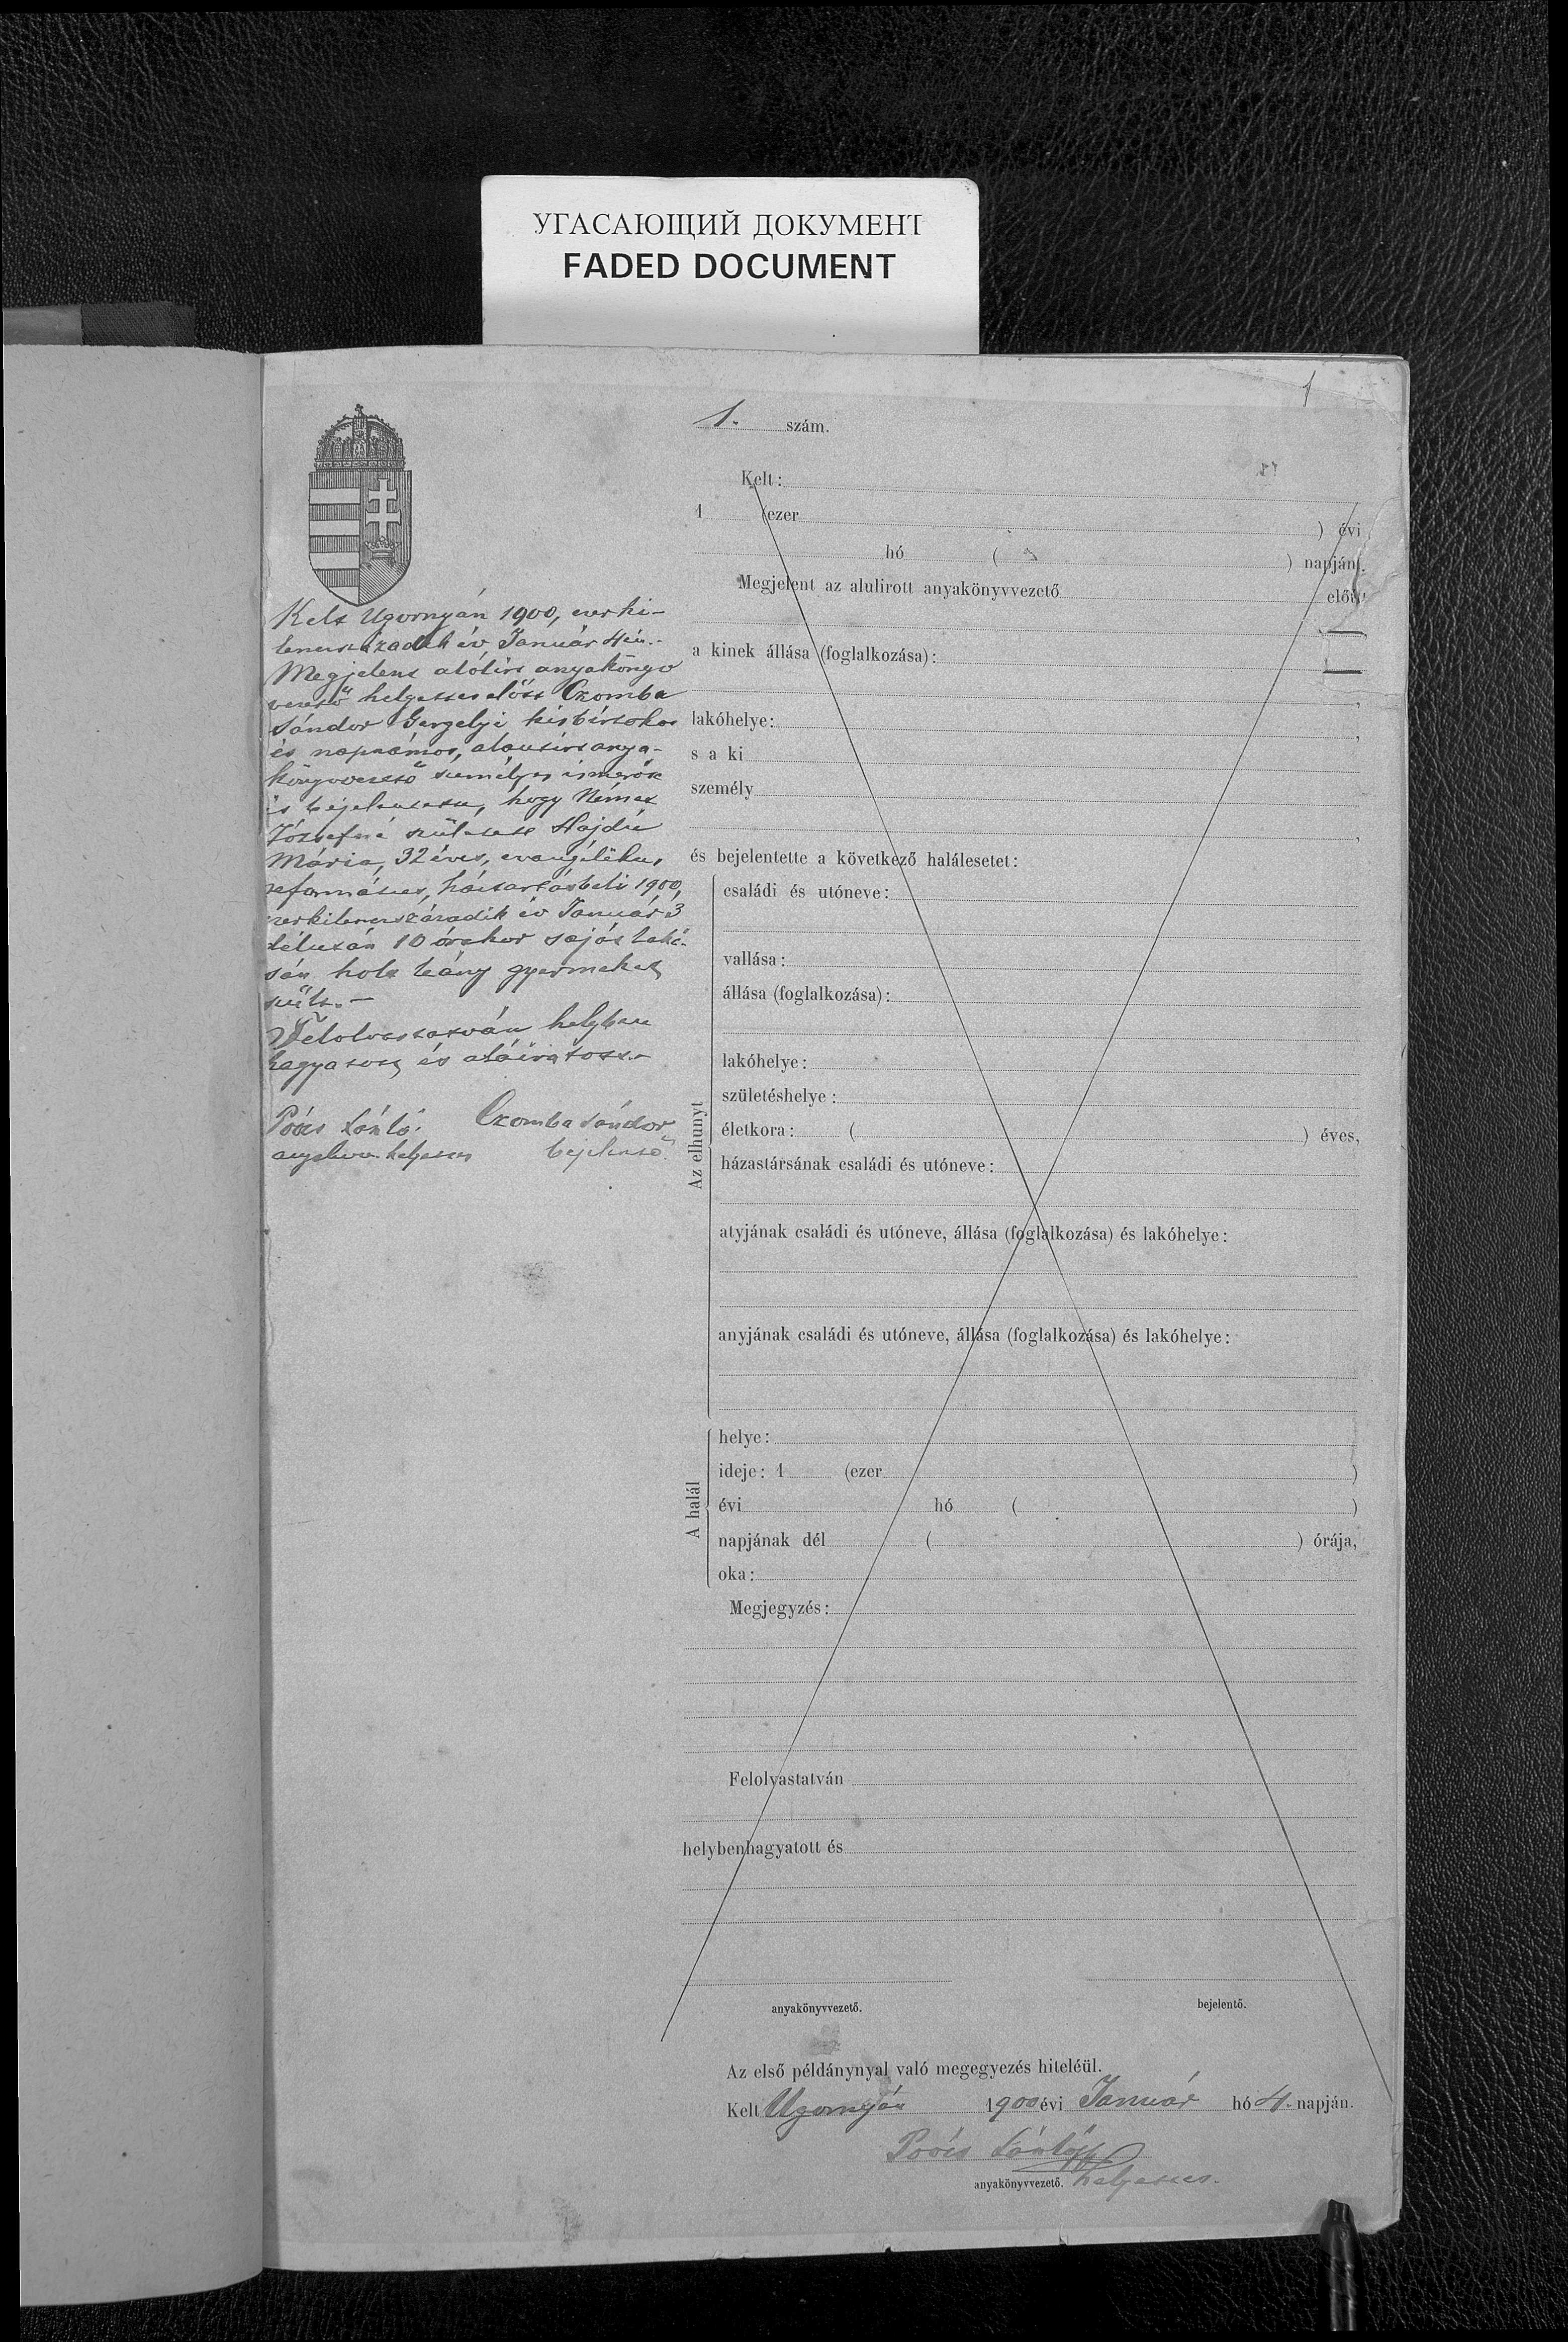 УГАСАЮЩИЙ ДОКУМЕНТ
FADED DOCUMENT
1
1. szám.
Kelt Ugornyán 1900, ezerki-
lencszázadik év Január 4én.-
Megjelent alólirt anyakönyv
vezető helyettes előtt Czomba
Sándor Gergelyi kisbírtokos
és napszámos, alantirt anya-
könyvvezető személyes ismerőse
is bejelentette, hogy Német
Józsefné született Hajdú
Mária, 32 éves, evangéliku,
református, háztartásbeli 1900,
ezerkilencszázadik év Január 3
délután 10 órakor saját laká-
sán holt leány gyermeket
szült.-
Felolvastatván helyben
hagyatott és aláíratott.-
Czomba Sándor
helyettes bejelentő
Kelt:
1 (ezer ) évi
hó ( ) napján.
Megjelent az alulirott anyakönyvvezető előtt
a kinek állása (foglalkozása):
lakóhelye:
s a ki
személy
és bejelentette a következő halálesetet:
Az elhunyt
családi és utóneve:
vallása:
állása (foglalkozása):
lakóhelye:
születéshelye:
életkora: ( ) éves,
házastársának családi és utóneve:
atyjának családi és utóneve, állása (foglalkozása) és lakóhelye:
anyjának családi és utóneve, állása (foglalkozása) és lakóhelye:
A halál
helye:
ideje: 1 (ezer )
évi hó ( )
napjának dél ( ) órája,
oka:
Megjegyzés:
Felolvastatván
helybenhagyatott és
anyakönyvvezető. bejelentő.
Az első példánynyal való megegyezés hiteléül.
Kelt Ugornyán 1900 évi Január hó 4. napján.
anyakönyvvezető. helyettes.